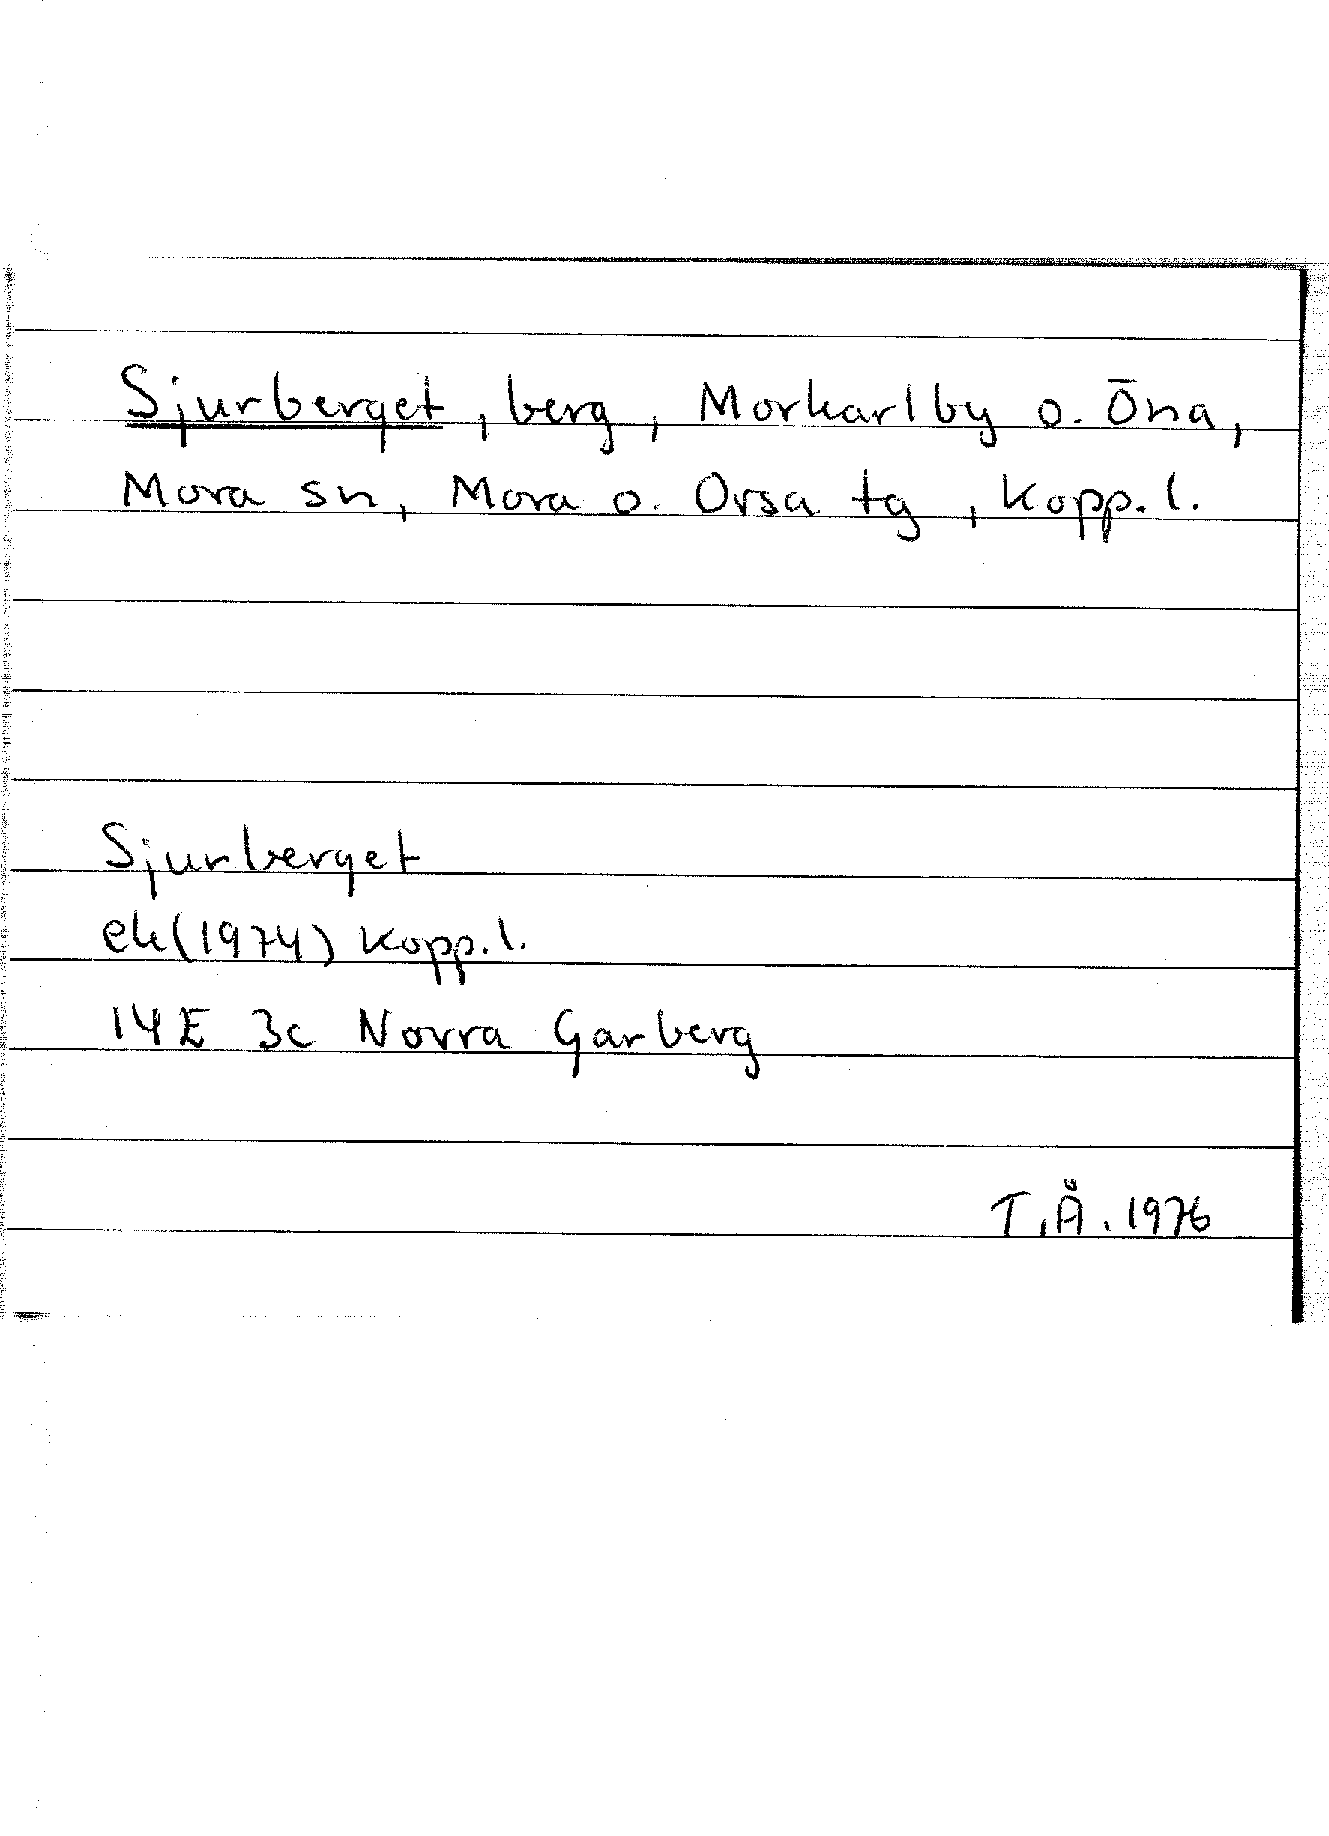 Sjurberget, berg, Morkarlby o. Öna,
Mora sn, Mora o. Orsa tg, Kopp. l.
Sjurberget
ek(1974) Kopp. l.
14E 3c Norra Garberg
T.Å. 1976